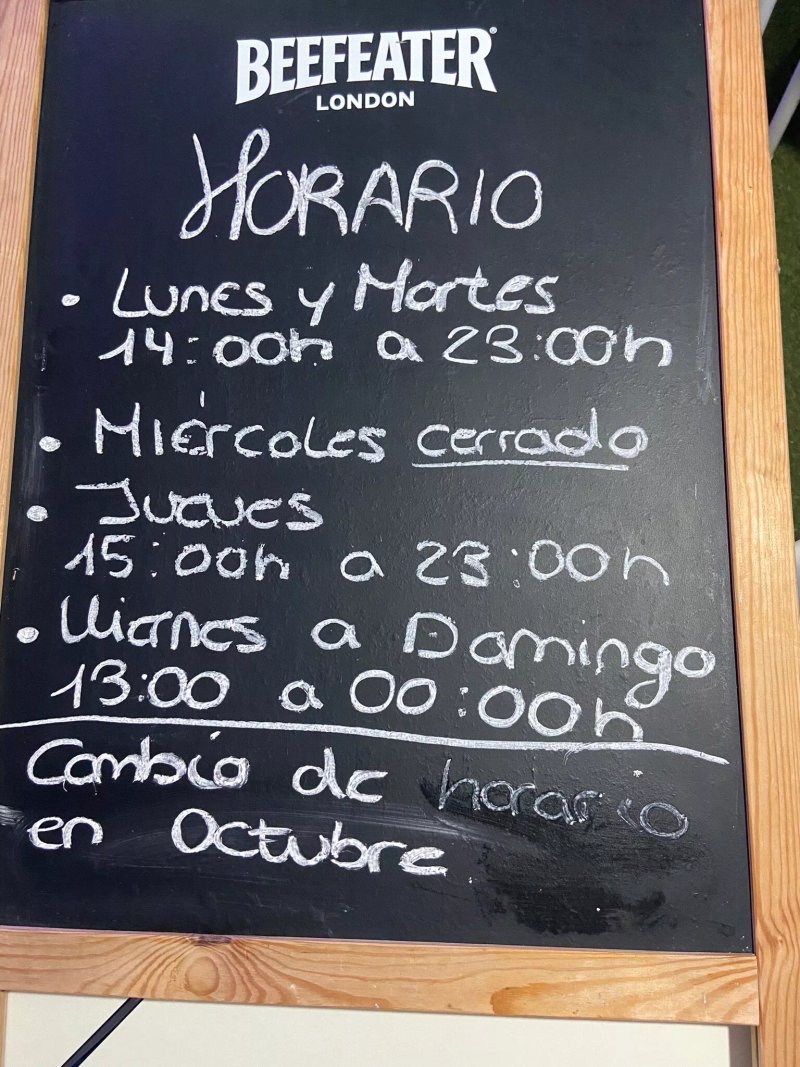 BEEFEATER®
LONDON
HORARIO
• Lunes y Martes
14:00h a 23:00h
• Miércoles cerrado
• Jueves
15:00h a 23:00h
• Viernes a Domingo
13:00 a 00:00h
Cambio de horario
en Octubre